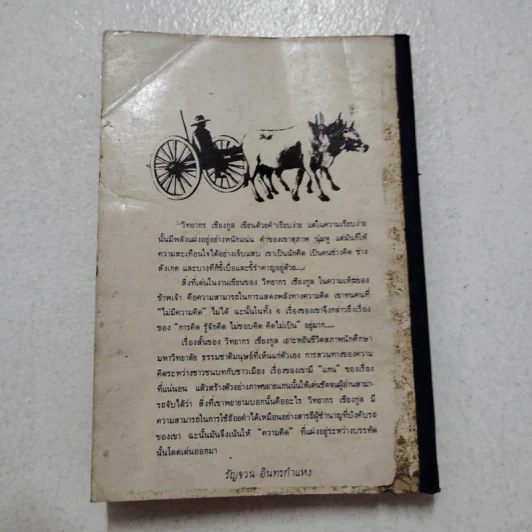 วิทยากร เชียงกูล เขียนด้วยคำเรียบง่าย แต่ในความเรียบง่าย
นั้นมีพลังแฝงอยู่อย่างหนักแน่น คำของเขาสุภาพ นุ่มหู แต่มันก็ให้
ความสะเทือนใจได้อย่างเจ็บแสบ เขาเป็นนักคิด เป็นคนช่างคิด ช่าง
สังเกต และบางทีก็ขี้เบื่อและขี้รำคาญอยู่ด้วย....
สิ่งที่เด่นในงานเขียนของ วิทยากร เชียงกูล ในความเห็นของ
ข้าพเจ้า คือความสามารถในการแสดงพลังทางความคิด เขาทนคนที่
"ไม่มีความคิด" ไม่ได้ ฉะนั้นในทั้ง ๑ เรื่องของเขาจึงกล่าวถึงเรื่อง
ของ "การคิด รู้จักคิด ไม่ชอบคิด คิดไม่เป็น" อยู่มาก....
เรื่องสั้นของ วิทยากร เชียงกูล เอาะหยันชีวิตสภาพนักศึกษา
มหาวิทยาลัย ธรรมชาติมนุษย์ที่เห็นแก่ตัวเอง การสวนทางของความ
คิดระหว่างชาวชนบทกับชาวเมือง เรื่องของเขามี "แกน" ของเรื่อง
ที่แน่นอน แล้วสร้างตัวอย่างภาพขยายแกนนั้นให้เด่นชัดจนผู้อ่านสามา-
รถจับได้ว่า สิ่งที่เขาพยายามบอกนั้นคืออะไร วิทยากร เชียงกูล มี
ความสามารถในการใช้ถ้อยคำได้เหมือนอย่างสารถีผู้ชำนาญที่บังคับรถ
ของเขา ฉะนั้นมันจึงเน้นให้ "ความคิด" ที่แฝงอยู่ระหว่างบรรทัด
นั้นโดดเด่นออกมา
รัญจวน อินทรกำแหง